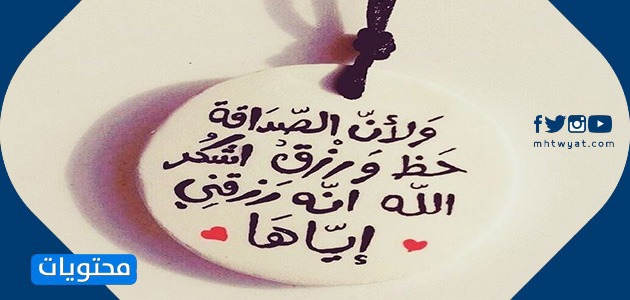 وَلأنّ الصّدَاقة
حَظ وَرْزقْ اشكُر
اللّه انّه رَزقني
إيّاهَا
mhtwyat.com
محتويات